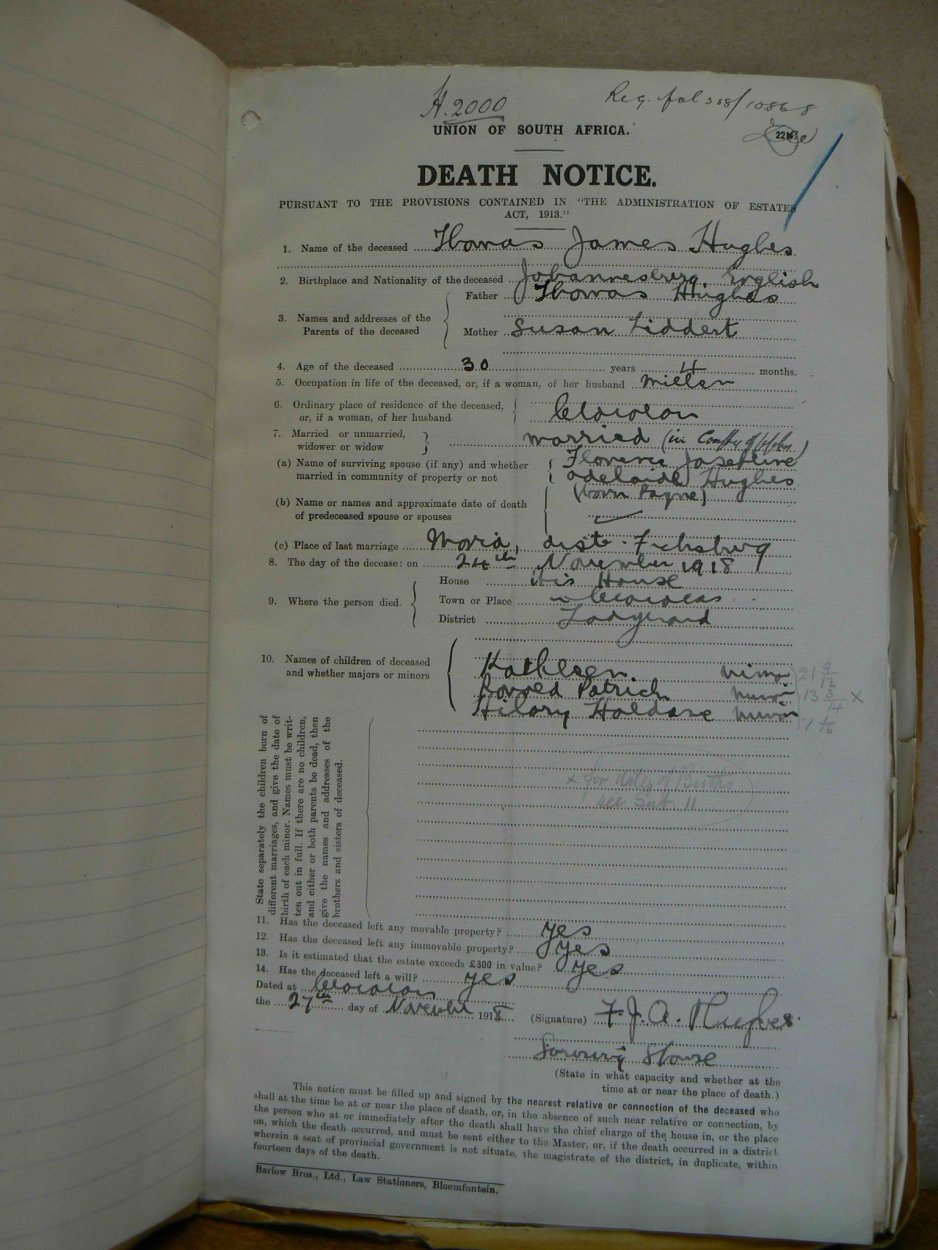 H.2000
Reg. fol 308/10868
UNION OF SOUTH AFRICA.
221
DEATH NOTICE.
PURSUANT TO THE PROVISIONS CONTAINED IN "THE ADMINISTRATION OF ESTATES
ACT, 1913."
1. Name of the deceased Thomas James Hughes
2. Birthplace and Nationality of the deceased Johannesburg English
3. Names and addresses of the Parents of the deceased
Father Thomas Hughes
Mother Susan Liddert
4. Age of the deceased 30 years 4 months.
5. Occupation in life of the deceased, or, if a woman, of her husband
6. Ordinary place of residence of the deceased,
or, if a woman, of her husband Clocolan
7. Married or unmarried,
widower or widow married (in Com^ty of
(a) Name of surviving spouse (if any) and whether
married in community of property or not
Florence Josephine
Adelaide Hughes
(born Payne)
(b) Name or names and approximate date of death
of predeceased spouse or spouses
(c) Place of last marriage Moria, distr. Ficksburg
8. The day of the decease: on 24th November 1918
9. Where the person died.
House His House
Town or Place Clocolan
District Ladybrand
10. Names of children of deceased
and whether majors or minors
Kathleen minor 21 9/12
Patrick minor 13 3/14 x
Hilary Haldane minor
State separately the children born of
different marriages, and give the date of
birth of each minor. Names must be writ-
ten out in full. If there are no children,
and either or both parents be dead, then
give the names and addresses of the
brothers and sisters of deceased.
x for dates of Births
see Sub. 11
11. Has the deceased left any movable property? yes
12. Has the deceased left any immovable property? yes
13. Is it estimated that the estate exceeds £300 in value? yes
14. Has the deceased left a will? yes
Dated at Clocolan
the 27th day of November 1918
(Signature) F. J. A. Hughes
Spouse
(State in what capacity and whether at the
time at or near the place of death.)
This notice must be filled up and signed by the nearest relative or connection of the deceased who
shall at the time be at or near the place of death, or, in the absence of such near relative or connection, by
the person who at or immediately after the death shall have the chief charge of the house in, or the place
on, which the death occurred, and must be sent either to the Master, or, if the death occurred in a district
wherein a seat of provincial government is not situate, the magistrate of the district, in duplicate, within
fourteen days of the death.
Barlow Bros., Ltd., Law Stationers, Bloemfontein.